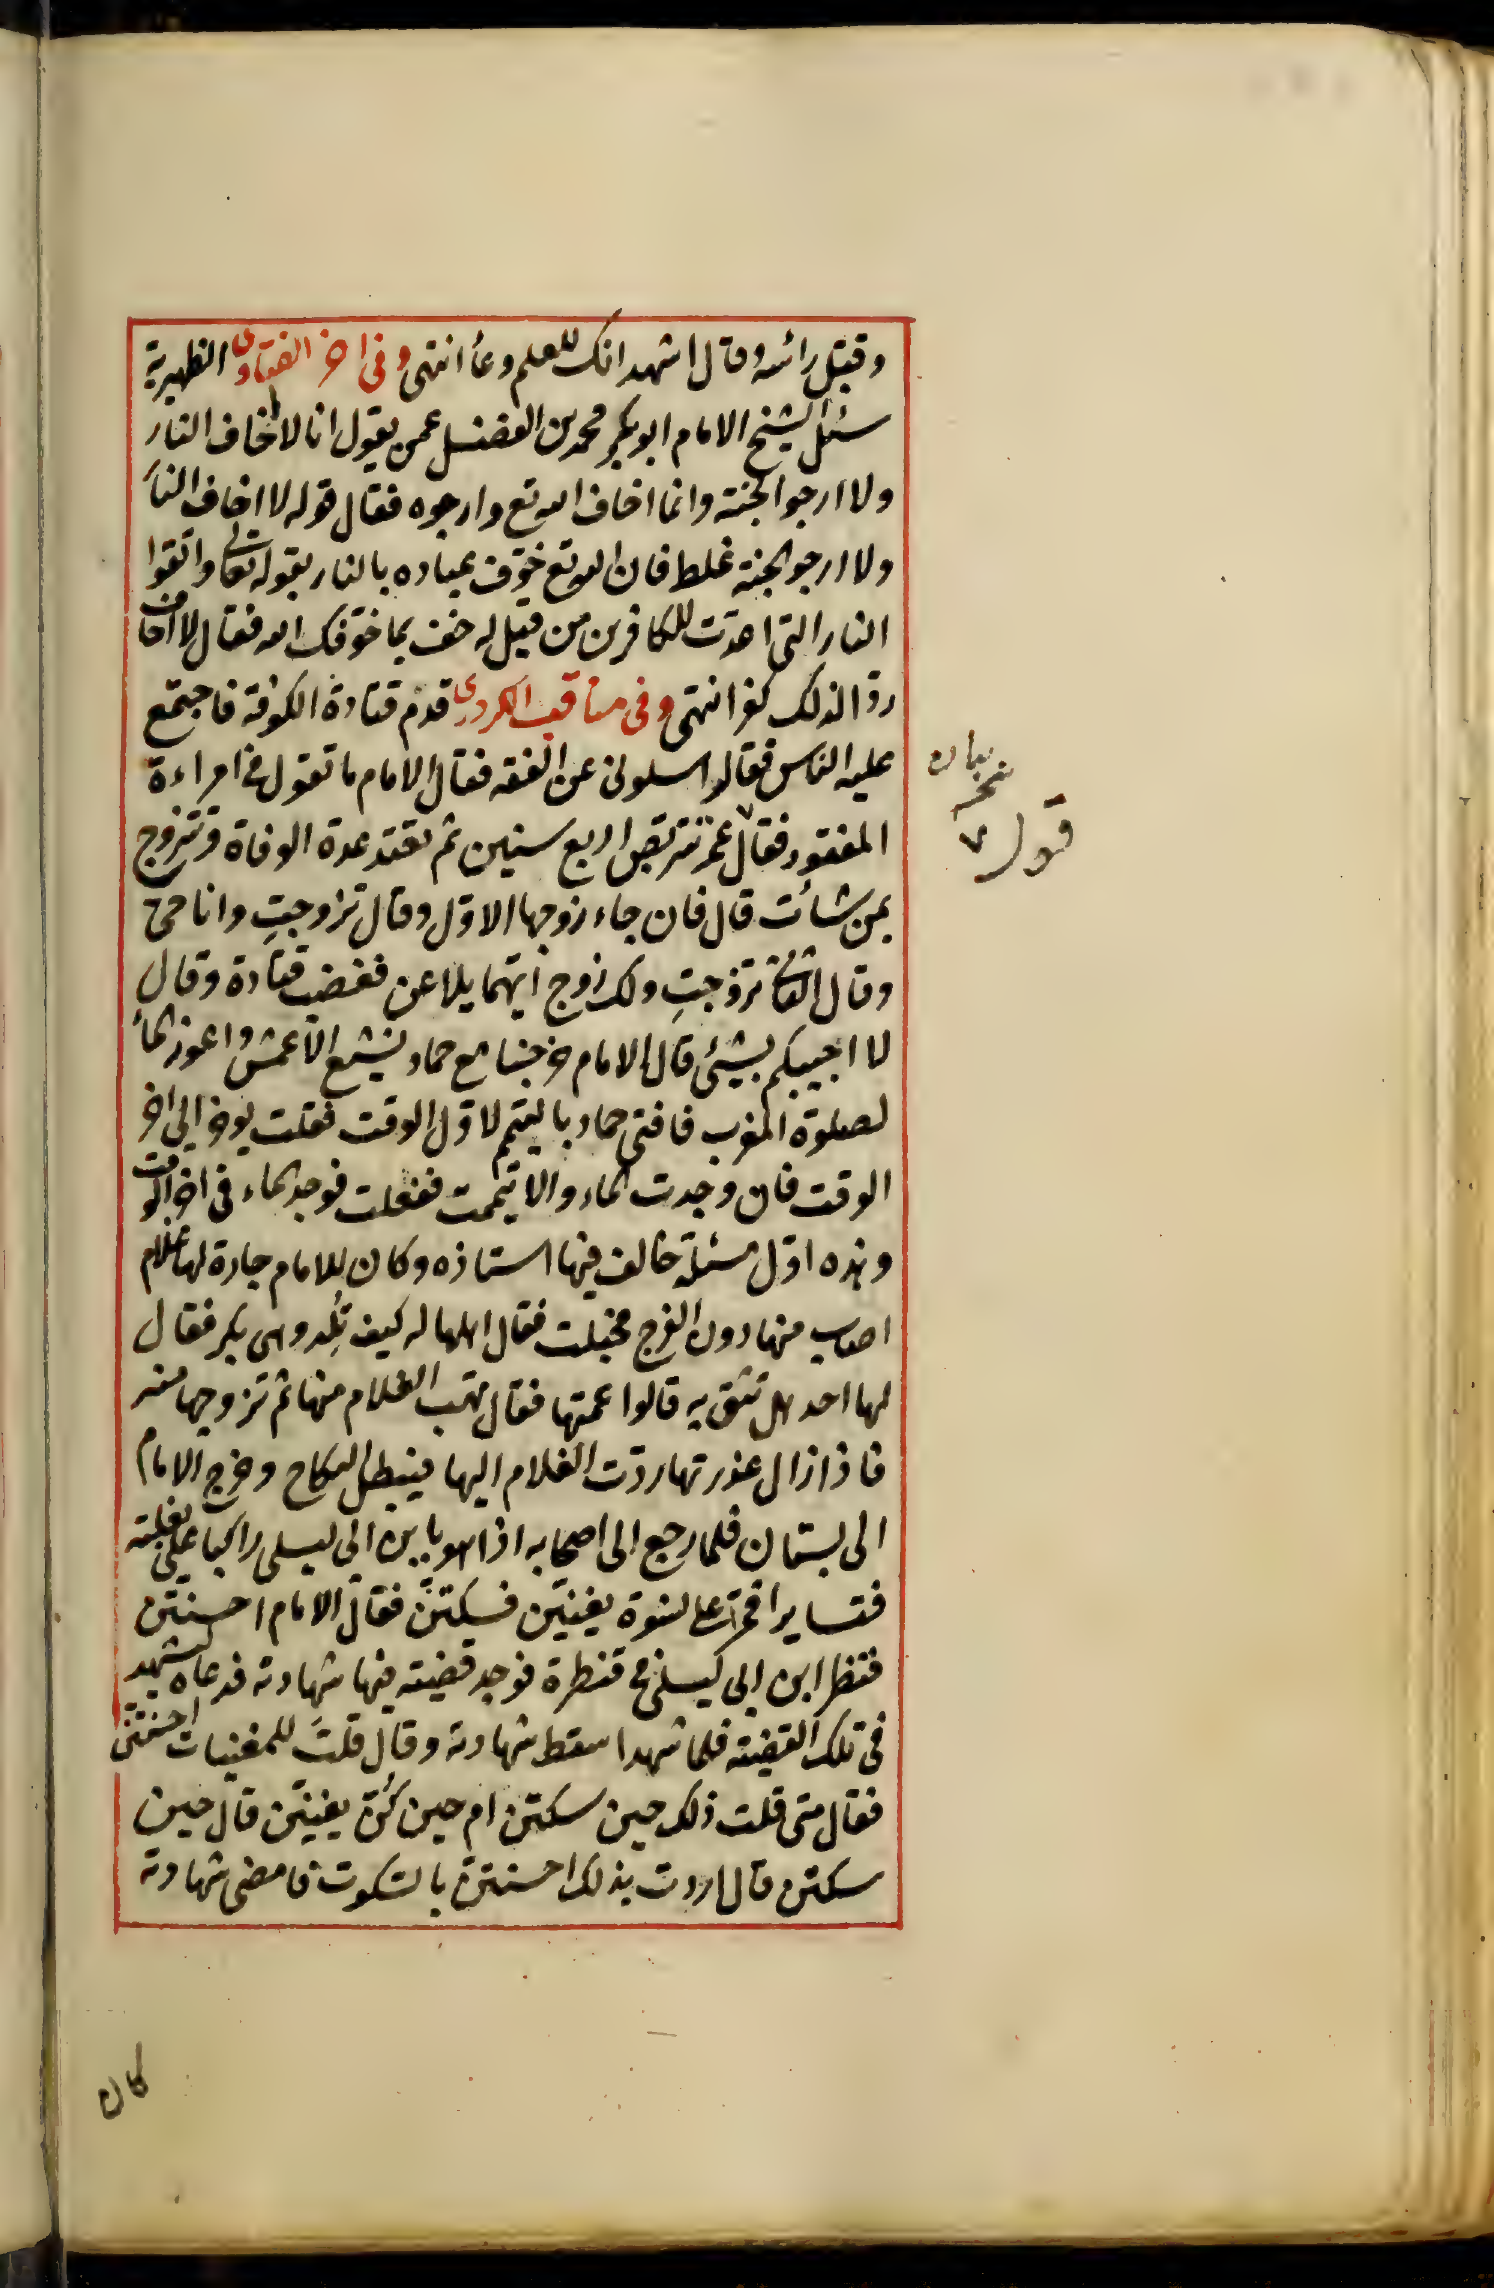 وقبّل رائسه وقال اشهد انك للعلم وعاء انتهى وفى اخر الفتاوى الظهيرية
سئل الشيخ الامام ابو بكر محمد بن الفضل عمن يقول انا لا اخاف النار
ولا ارجوا الجنة وانما اخاف الله تع وارجوه فقال قوله لا اخاف النار
ولا ارجو الجنة غلط فان الله تع خوّف عباده بالنار بقوله تعالى واتقوا
النار التى اعدّت للكافرين من قيل له خف بما خوّفك الله فقال لا اخاف
ردّا لذلك كفر انتهى وفى مناقب الكردرى قدم قتادة الكوفة فاجتمع
عليه الناس فقال سلونى عن الفقه فقال الامام ما تقول فى امراءة
المفقود فقال عمر تتربّص اربع سنين ثم تعتد عدة الوفاة وتتزوج
بمن شائت قال فان جاء زوجها الاوّل وقال تزوجتِ وانا حىّ
وقال الثانى تزوّجتِ ولك زوج ايّهما يلاعن فغضب قتادة وقال
لا اجيبكم بشيئ قال الامام خرجنا مع حماد نشيّع الاعمش واعوز الماء
لصلوة المغرب فافتى حماد بالتيمّم لاوّل الوقت فقلت يؤخر الى اخر
الوقت فان وجدت الماء والا تيمّمت ففعلت فوجد الماء فى اخر الوقت
وهذه اوّل مسئلة خالف فيها استاذه وكان للامام جارة لها غلام
اصاب منها دون الفرج فحبلت فقال اهلها له كيف تلِد وهى بكر فقال
لها احد هل تثق به قالوا عمتها فقال تهب الغلام منها ثم تزوجها منه
فاذا ازال عذرتها ردّت الغلام اليها فيبطل النكاح وخرج الامام
الى بستان فلما رجع الى اصحابه اذا هو بابن ابى ليلى راكبا على بغلته
فتسايرا فمرّا على نسوة يغنيّن فسكتنّ فقال الامام احسنتن
فنظر ابن ابى ليلى فى قنطرة فوجد قضيته فيها شهادته فدعاه ليشهد
فى تلك القضيته فلما شهد اسقط شهادته وقال قلتَ للمغنيات احسنتنّ
فقال متى قلت ذلك حين سكتن ام حين كُنّ يغنيّن قال حين
سكتن قال اردت بذلك احسنتن بالسّكوت فامضى شهادته
بيان
قول
كان